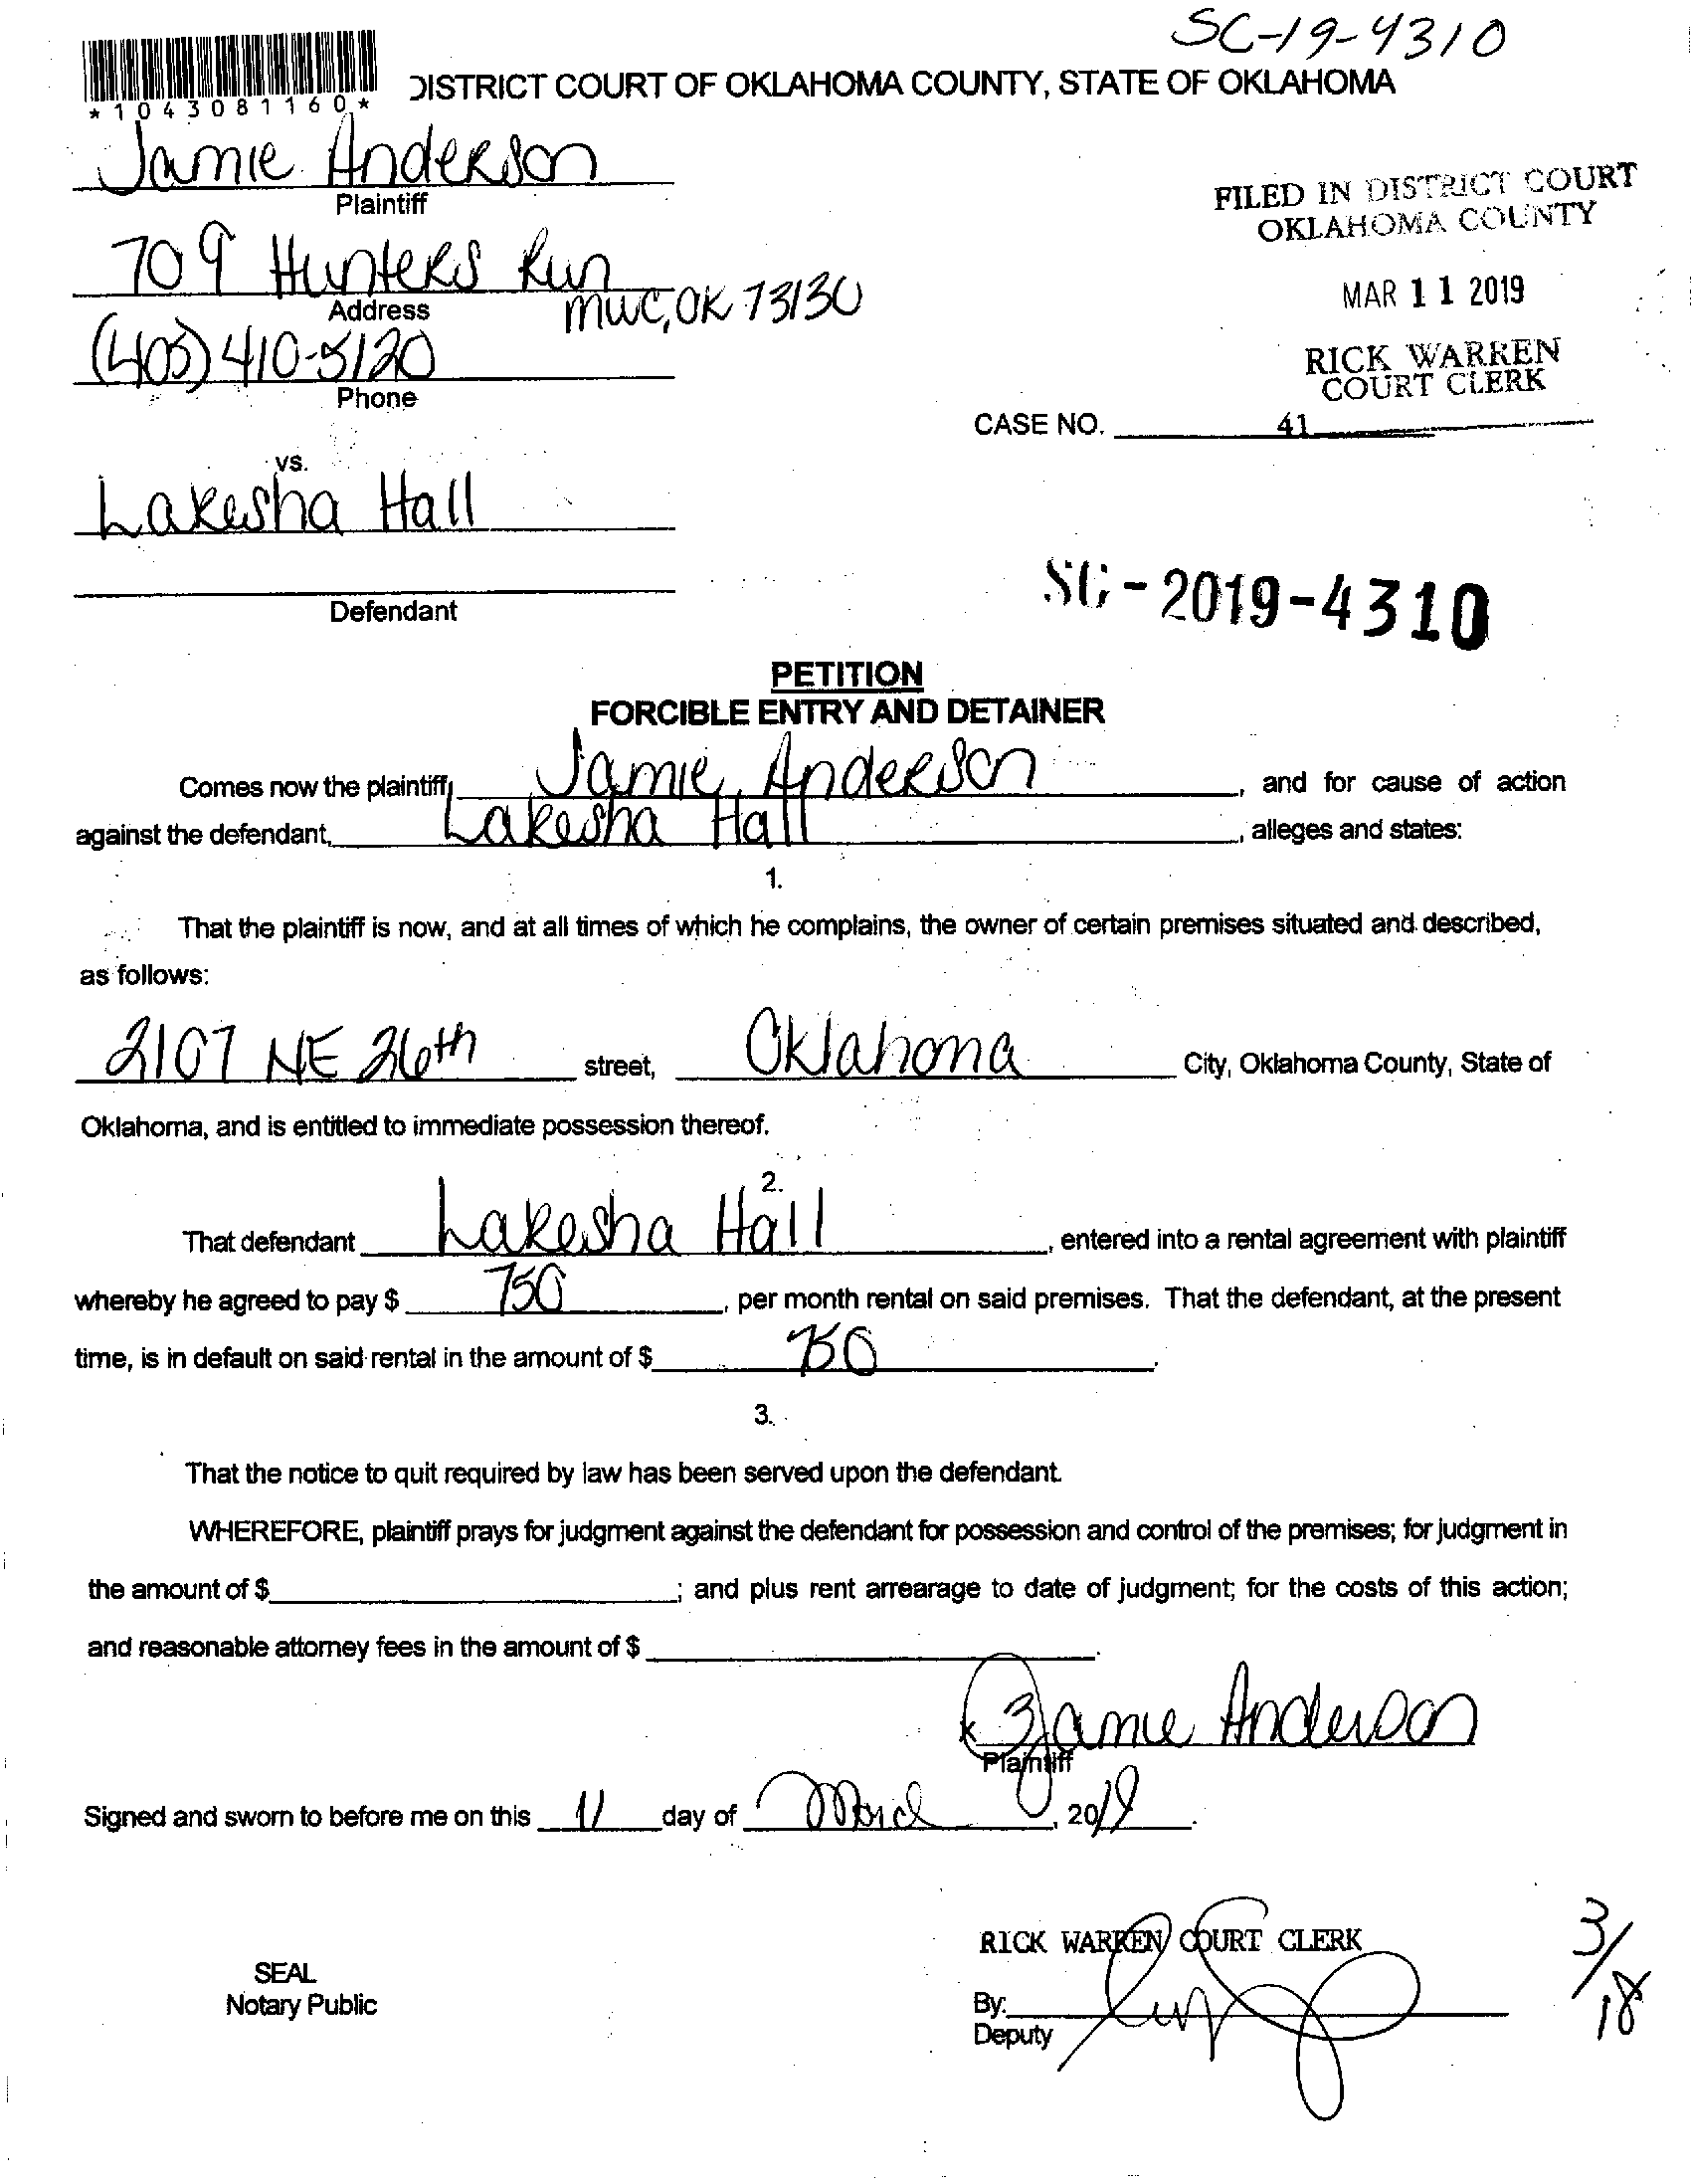 SC-19-4310
*1043081160*
DISTRICT COURT OF OKLAHOMA COUNTY, STATE OF OKLAHOMA
Jamie Anderson
Plaintiff
FILED IN DISTRICT COURT
OKLAHOMA COUNTY
709 Hunters Run
Address
MWC, OK 73130
MAR 11 2019
(405) 410-5120
Phone
RICK WARREN
COURT CLERK
CASE NO. 41
vs.
Lakesha Hall
Defendant
SC-2019-4310
PETITION
FORCIBLE ENTRY AND DETAINER
Comes now the plaintiff, Jamie Anderson, and for cause of action
against the defendant, Lakesha Hall, alleges and states:
1.
That the plaintiff is now, and at all times of which he complains, the owner of certain premises situated and described,
as follows:
2107 NE 26th street, Oklahoma City, Oklahoma County, State of
Oklahoma, and is entitled to immediate possession thereof.
2.
That defendant Lakesha Hall, entered into a rental agreement with plaintiff
whereby he agreed to pay $ 750, per month rental on said premises. That the defendant, at the present
time, is in default on said rental in the amount of $ 750.
3.
That the notice to quit required by law has been served upon the defendant.
WHEREFORE, plaintiff prays for judgment against the defendant for possession and control of the premises; for judgment in
the amount of $ ; and plus rent arrearage to date of judgment; for the costs of this action;
and reasonable attorney fees in the amount of $ .
x Jamie Anderson
Plaintiff
Signed and sworn to before me on this 11 day of March, 2019.
RICK WARREN COURT CLERK
3/18
SEAL
Notary Public
By:
Deputy